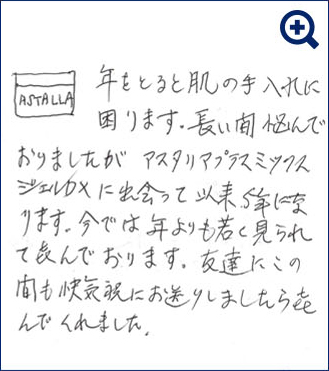 ASTALLA
年をとると肌の手入れに
困ります。長い間悩んで
おりましたが アスタリアプラスミックス
ジェルDXに出会って以来5年にな
ります。今では年よりも若く見られ
て喜んでおります。友達にこの
間も快気祝にお送りしましたら喜
んでくれました。